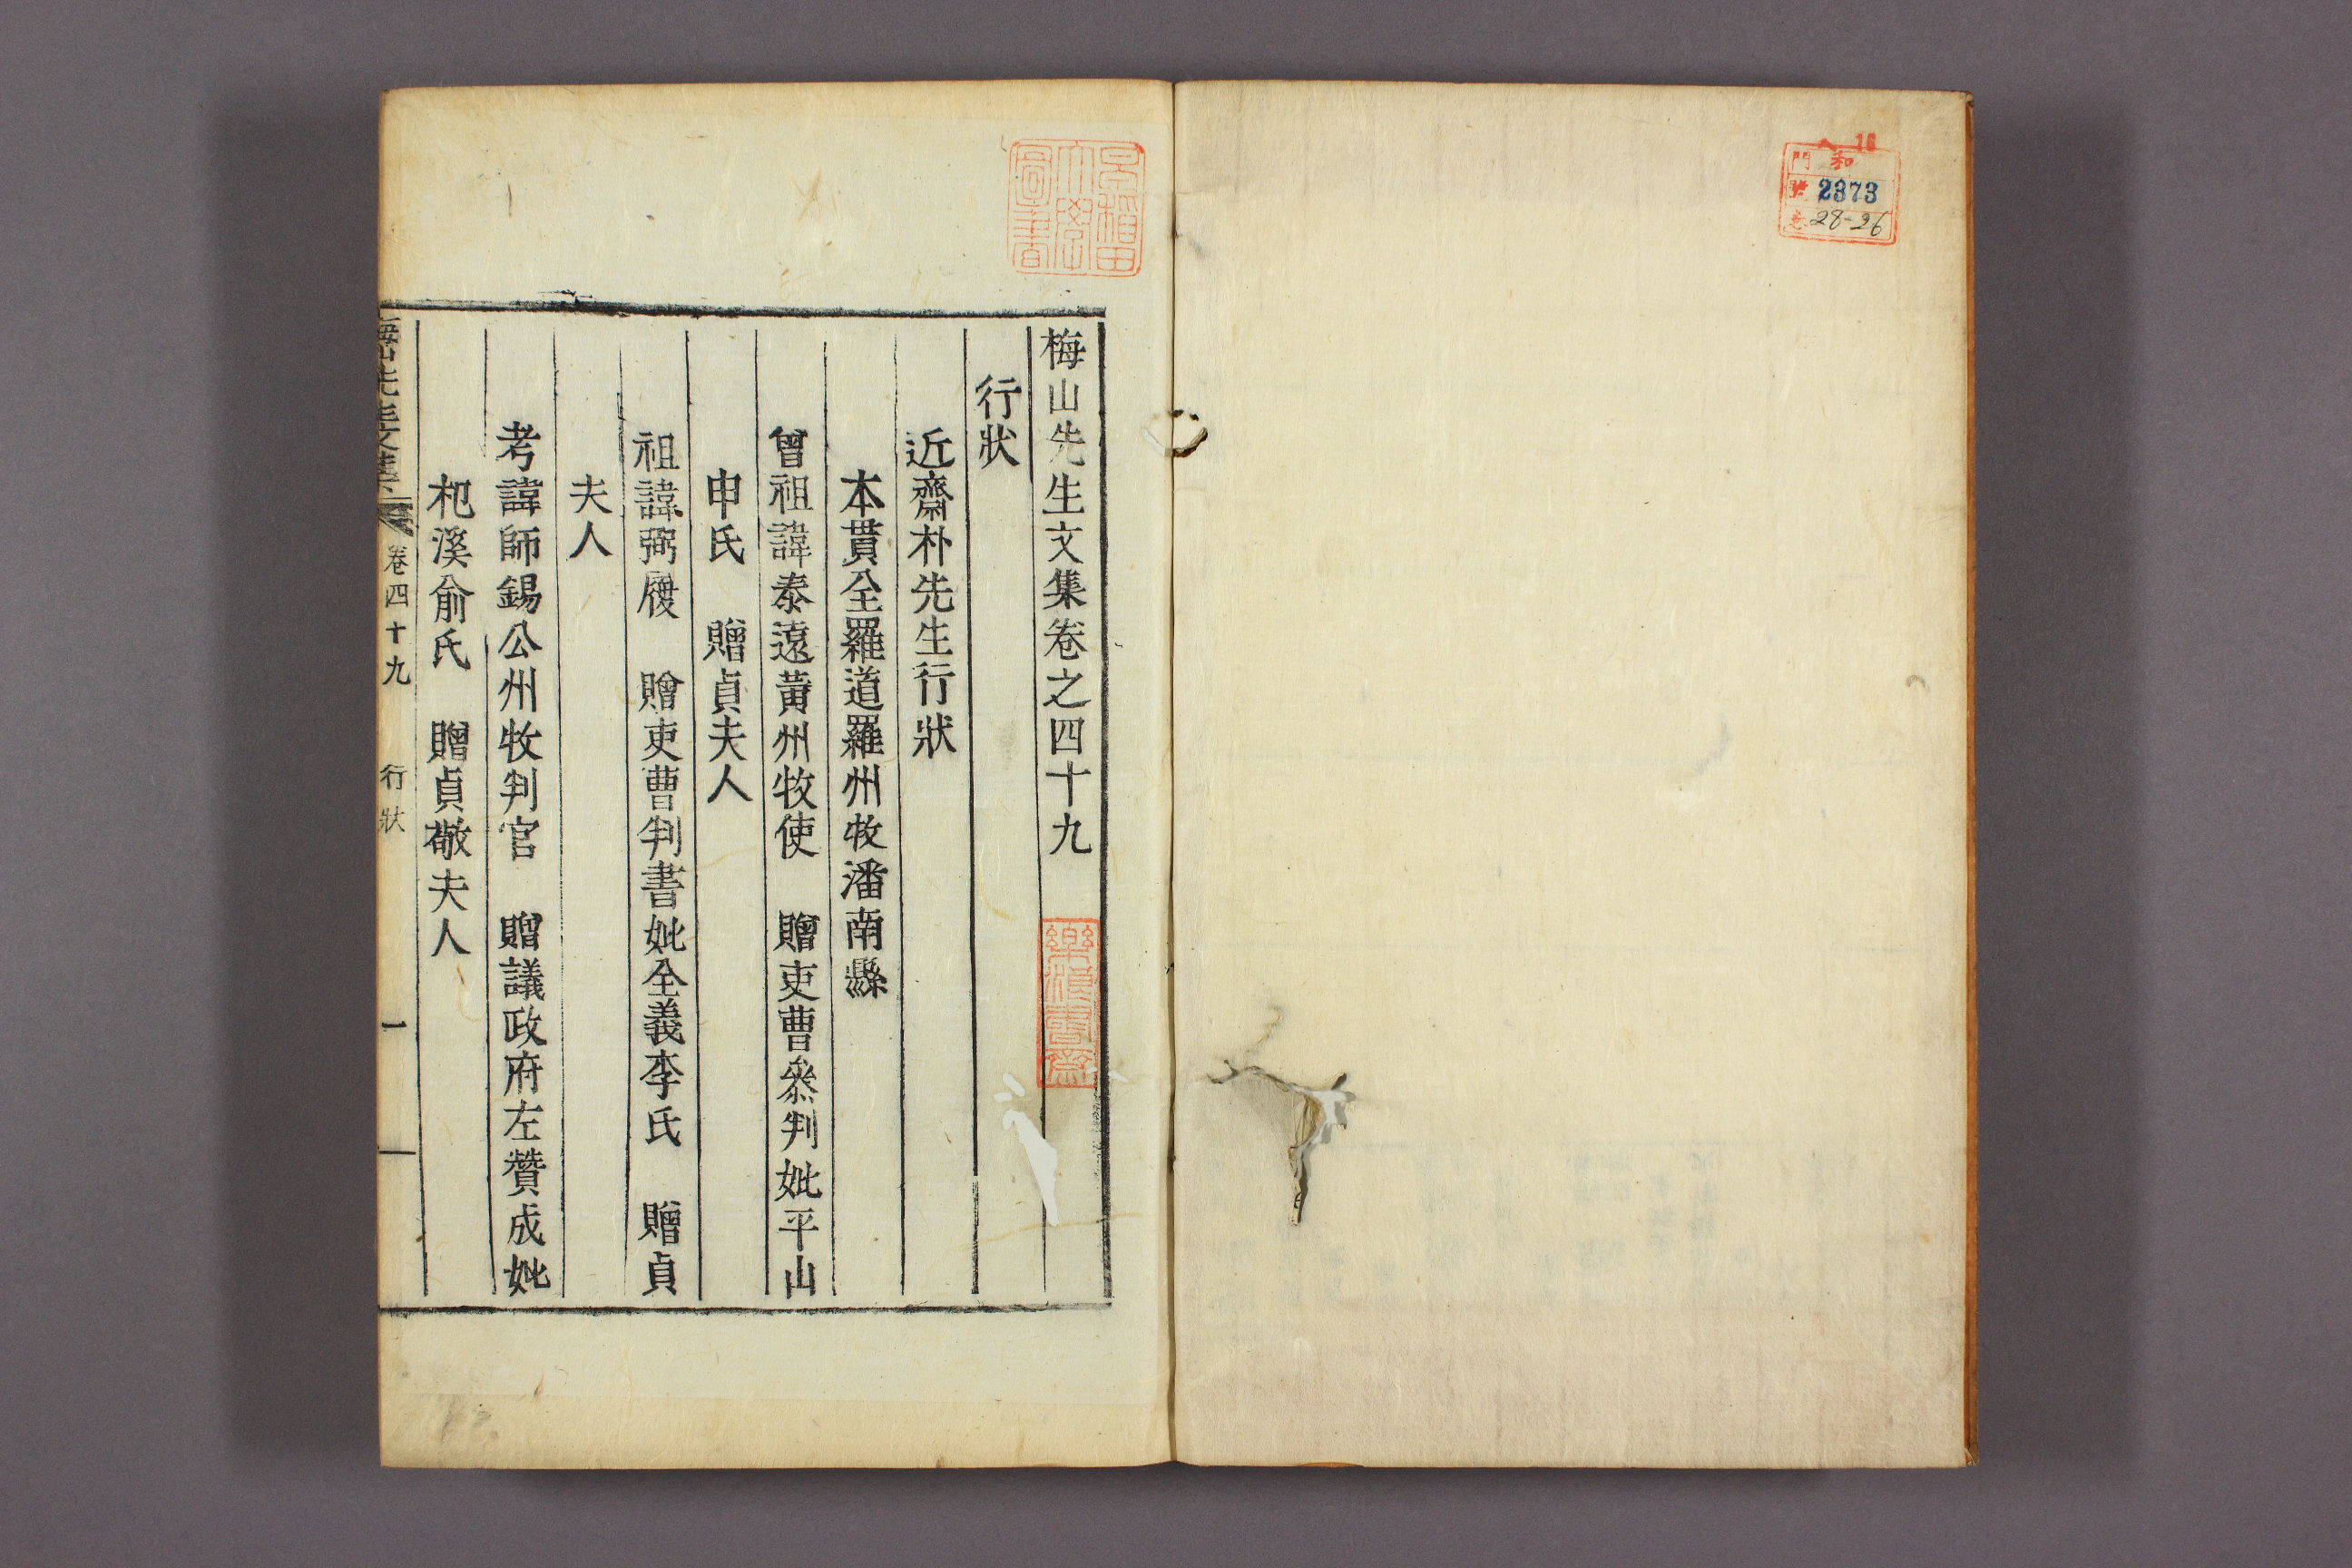 門 和
號 2373
卷 28-26
早稲田大學圖書
梅山先生文集卷之四十九
樂浪書齋
行狀
近齋朴先生行狀
本貫全羅道羅州牧潘南縣
曾祖諱泰遠黃州牧使 贈吏曹叅判妣平山
申氏 贈貞夫人
祖諱弼履 贈吏曹判書妣全義李氏 贈貞
夫人
考諱師錫公州牧判官 贈議政府左贊成妣
杞溪俞氏 贈貞敬夫人
梅山先生文集 卷四十九 行狀 一